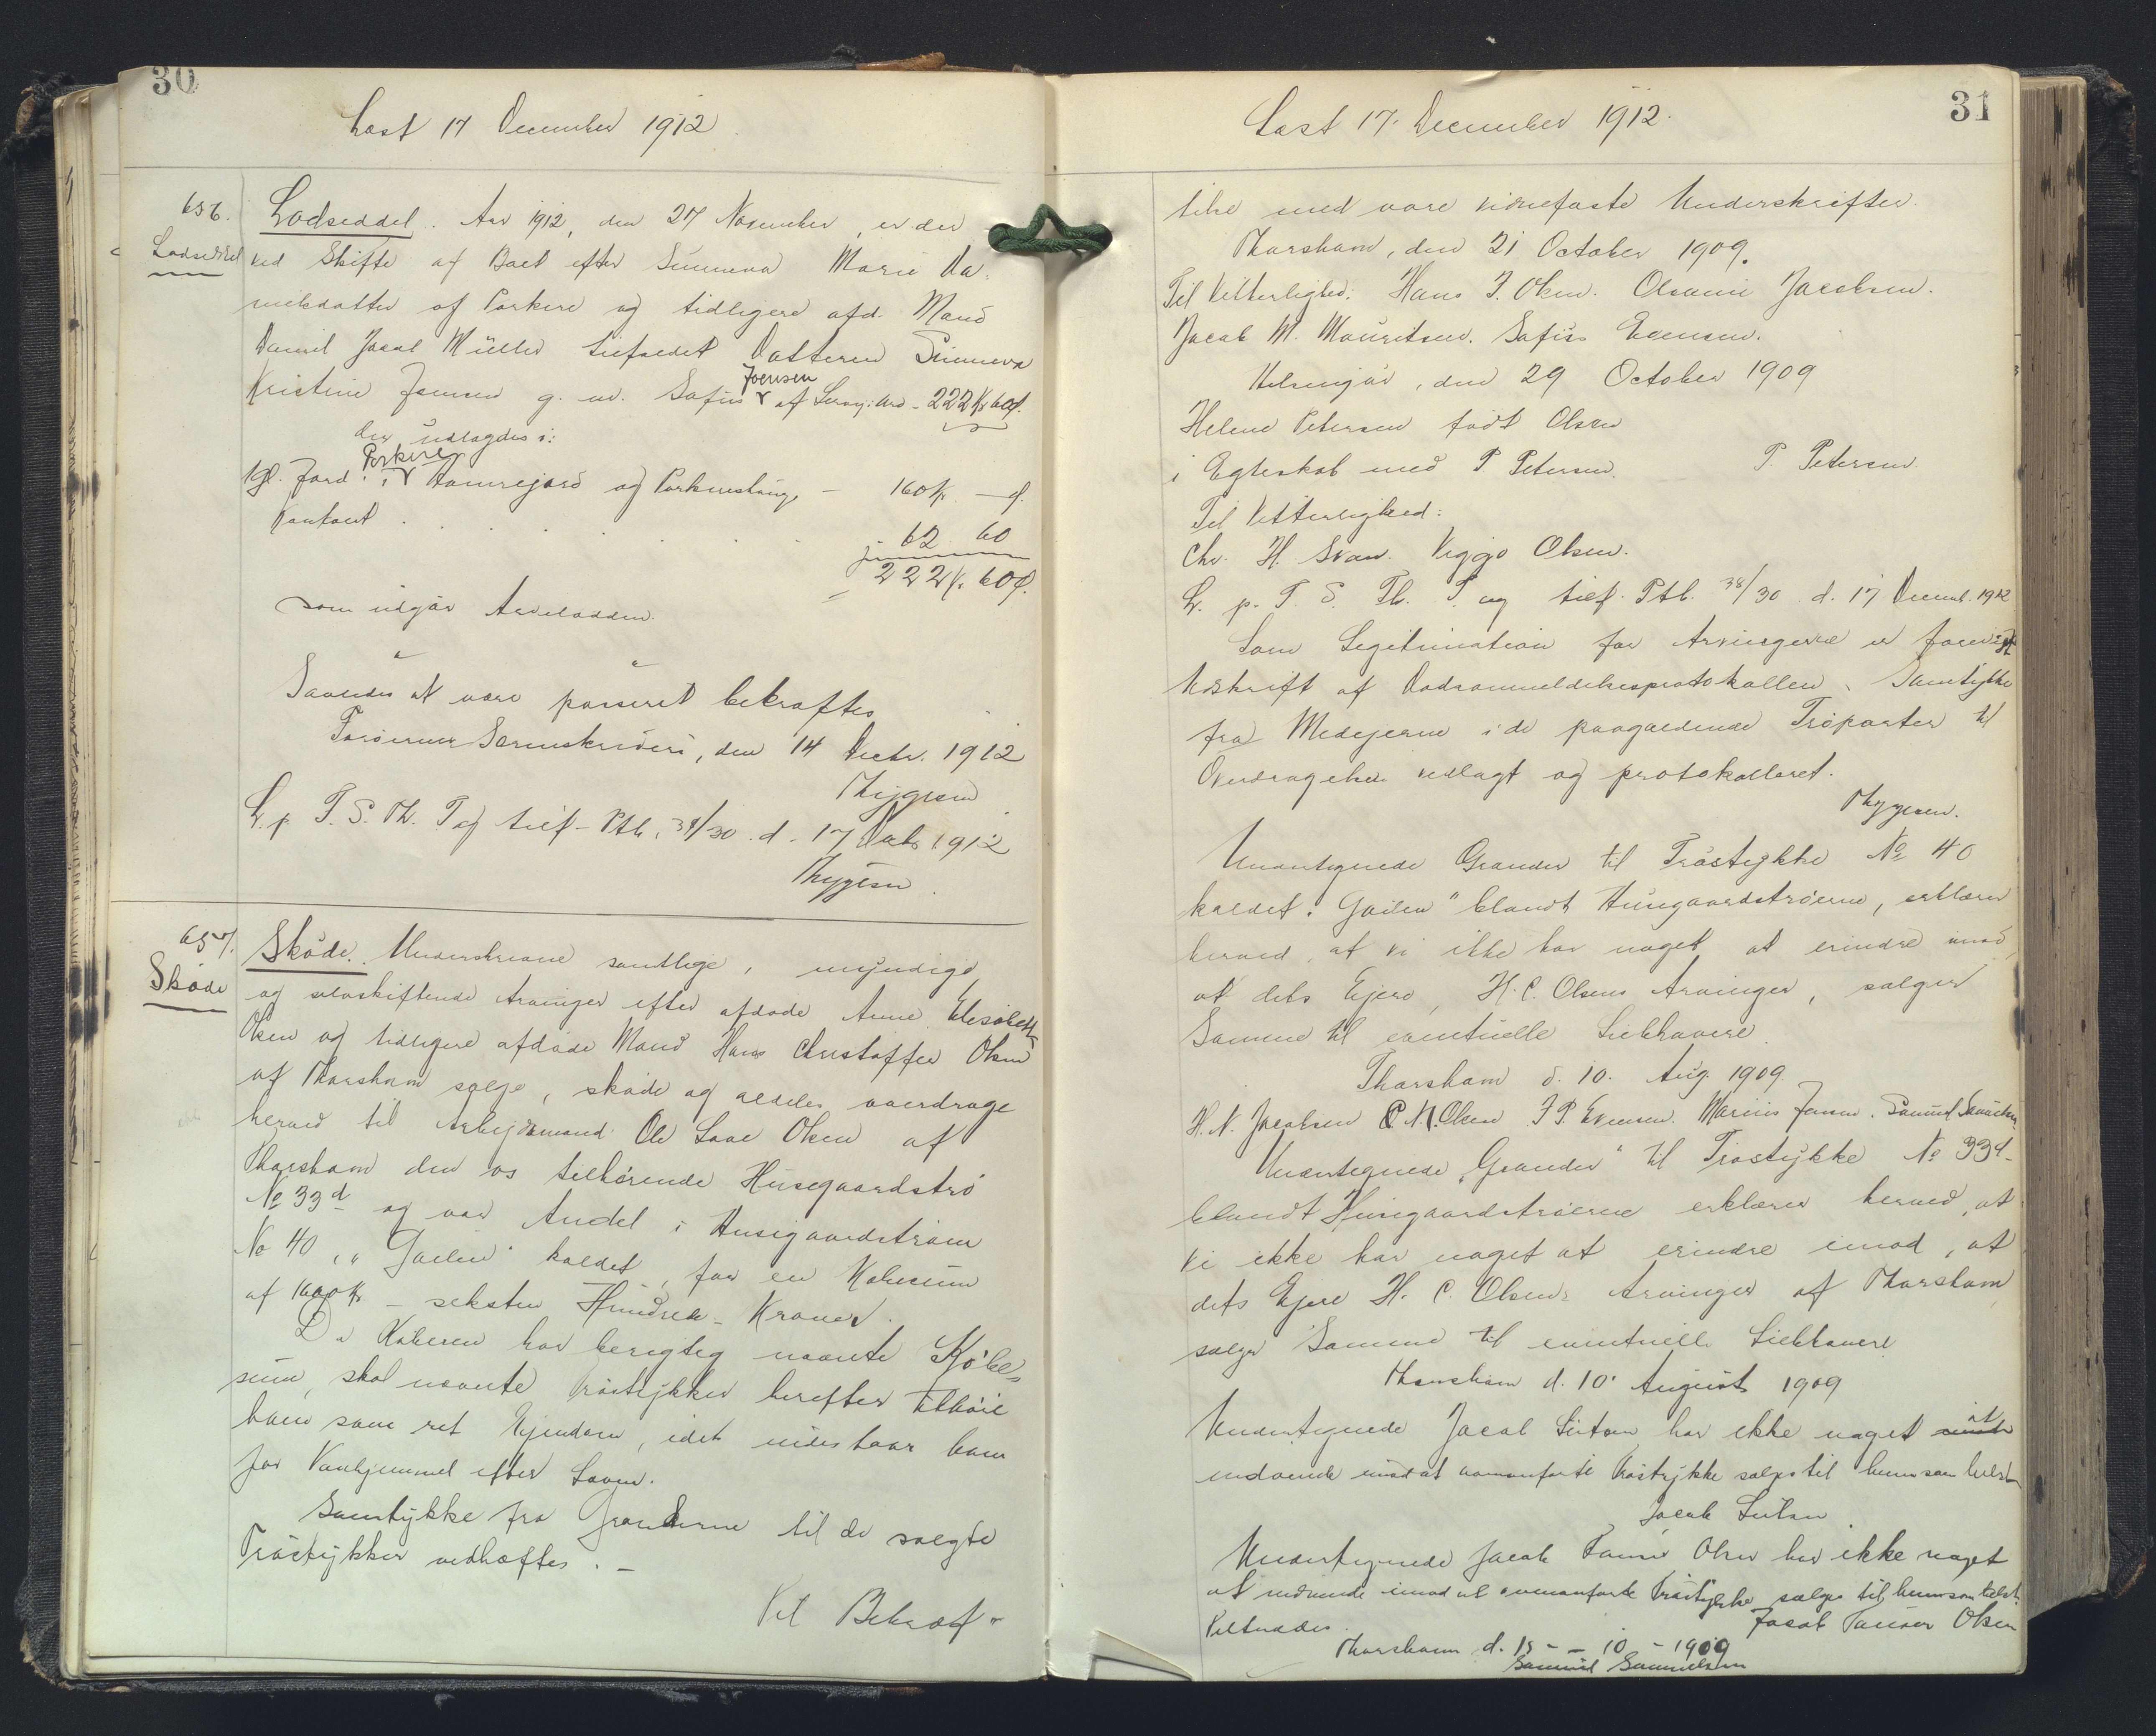 30
Læst 17 December 1912
656.
Lodseddel
Lodseddel. Aar 1912, den 27 November, er der
ved Skifte af Boet efter Sunneva Marie Da-
nielsdatter af Porkere og tidligere afd. Mand
Daniel Jacob Müller tilfaldet Datteren Sunneva
Kristine Joensen g. m. Sofus Joensen af - 222 Kr 60 Ø.
der udlagdes i:
Kgl. Jord i Porkere, Hamrejord og - 160 Kr. - Ø.
Kontant . . . . . 62 60
222 Kr. 60 Ø.
som udgør Arvelodden.
Saaledes at være passeret bekræftes
Færøernes Sorenskriveri, den 14 Decbr. 1912
Thygesen
L. p. T. S. Th. T og tilf. Ptb. 38/30 d. 17 Decbr 1912
Thygesen.
657.
Skøde
Skøde. Underskrevne samtlige, myndige
og selvskiftende Arvinger efter afdøde Anne Elisabeth
Olsen og tidligere afdøde Mand Hans Christoffer Olsen
af Thorshavn sælge, skøde og aldeles overdrage
herved til Arbejdsmand Ole Olsen af
Thorshavn den os tilhørende Husegaardstrø
No 33d og vor Andel i Husegaardstrøen
No 40, "Geilen" kaldet, for en Købesum
af 1600 Kr - seksten Hundrede - Kroner.
Da Køberen har berigtig nævnte Købe-
sum, skal nævnte Trøstykker herefter tilhøre
ham som ret Ejendom, idet indestaar ham
for Vanhjemmel efter Loven.
Samtykke fra Granderne til de solgte
Trøstykker vedhæftes. -
Til Bekræf-
31
Læst 17. December 1912.
telse med vore vidnefaste Underskrifter.
Thorshavn, den 21 October 1909.
Til Vitterlighed: Hans J. Olsen. Jacobsen.
Jacob M. Mouritsen. Sofus Evensen.
Helsingør, den 29 October 1909
Helene Petersen født Olsen
i Egteskab med P. Petersen. P. Petersen
Til Vitterlighed:
Chr. H. Svan. Viggo Olsen.
L. p. T. S. Th. T. og tilf. Ptb. 38/30 d. 17 Decemb. 1912
Som Legitimation for Arvingerne er forevist
Udskrift af Dødsanmeldelsesprotokollen. Samtykke
fra Medejerne i de paagældende Trøparter til
Overdragelsen vedlagt og protokolleret.
Thygesen.
Undertegnede Grander til Trøstykke No 40
kaldet "Geilen" blandt Husegaardstrøerne, erklærer
herved, at vi ikke har noget at erindre imod,
at dets Ejere, H. C. Olsens Arvinger, sælger
Samme til eventuelle Liebhavere.
Thorshavn d. 10. Aug. 1909
H. N. Jacobsen C. N. Olsen J P. Evensen. Marius Jensen. Samuel
Undertegnede "Grander" til Trøstykke No 33d
blandt Husegaardstrøerne erklærer herved, at
vi ikke har noget at erindre imod, at
dets Ejere H. C. Olsens Arvinger af Thorshavn
sælger Samme til eventuelle Liebhavere
Thorshavn d. 10' August 1909
Undertegnede Jacob Lützen har ikke noget at
indvende imod at ovenanførte Trøstykke sælges til hvem som helst
Jacob Lützen.
Undertegnede Jacob Olsen har ikke noget
at indvende imod at ovenanførte Trøstykke sælges til hvem som helst.
Jacob Olsen
Tiltrædes.
Thorshavn d. 15 - - 10 - 1909
Samuel Samuelsen